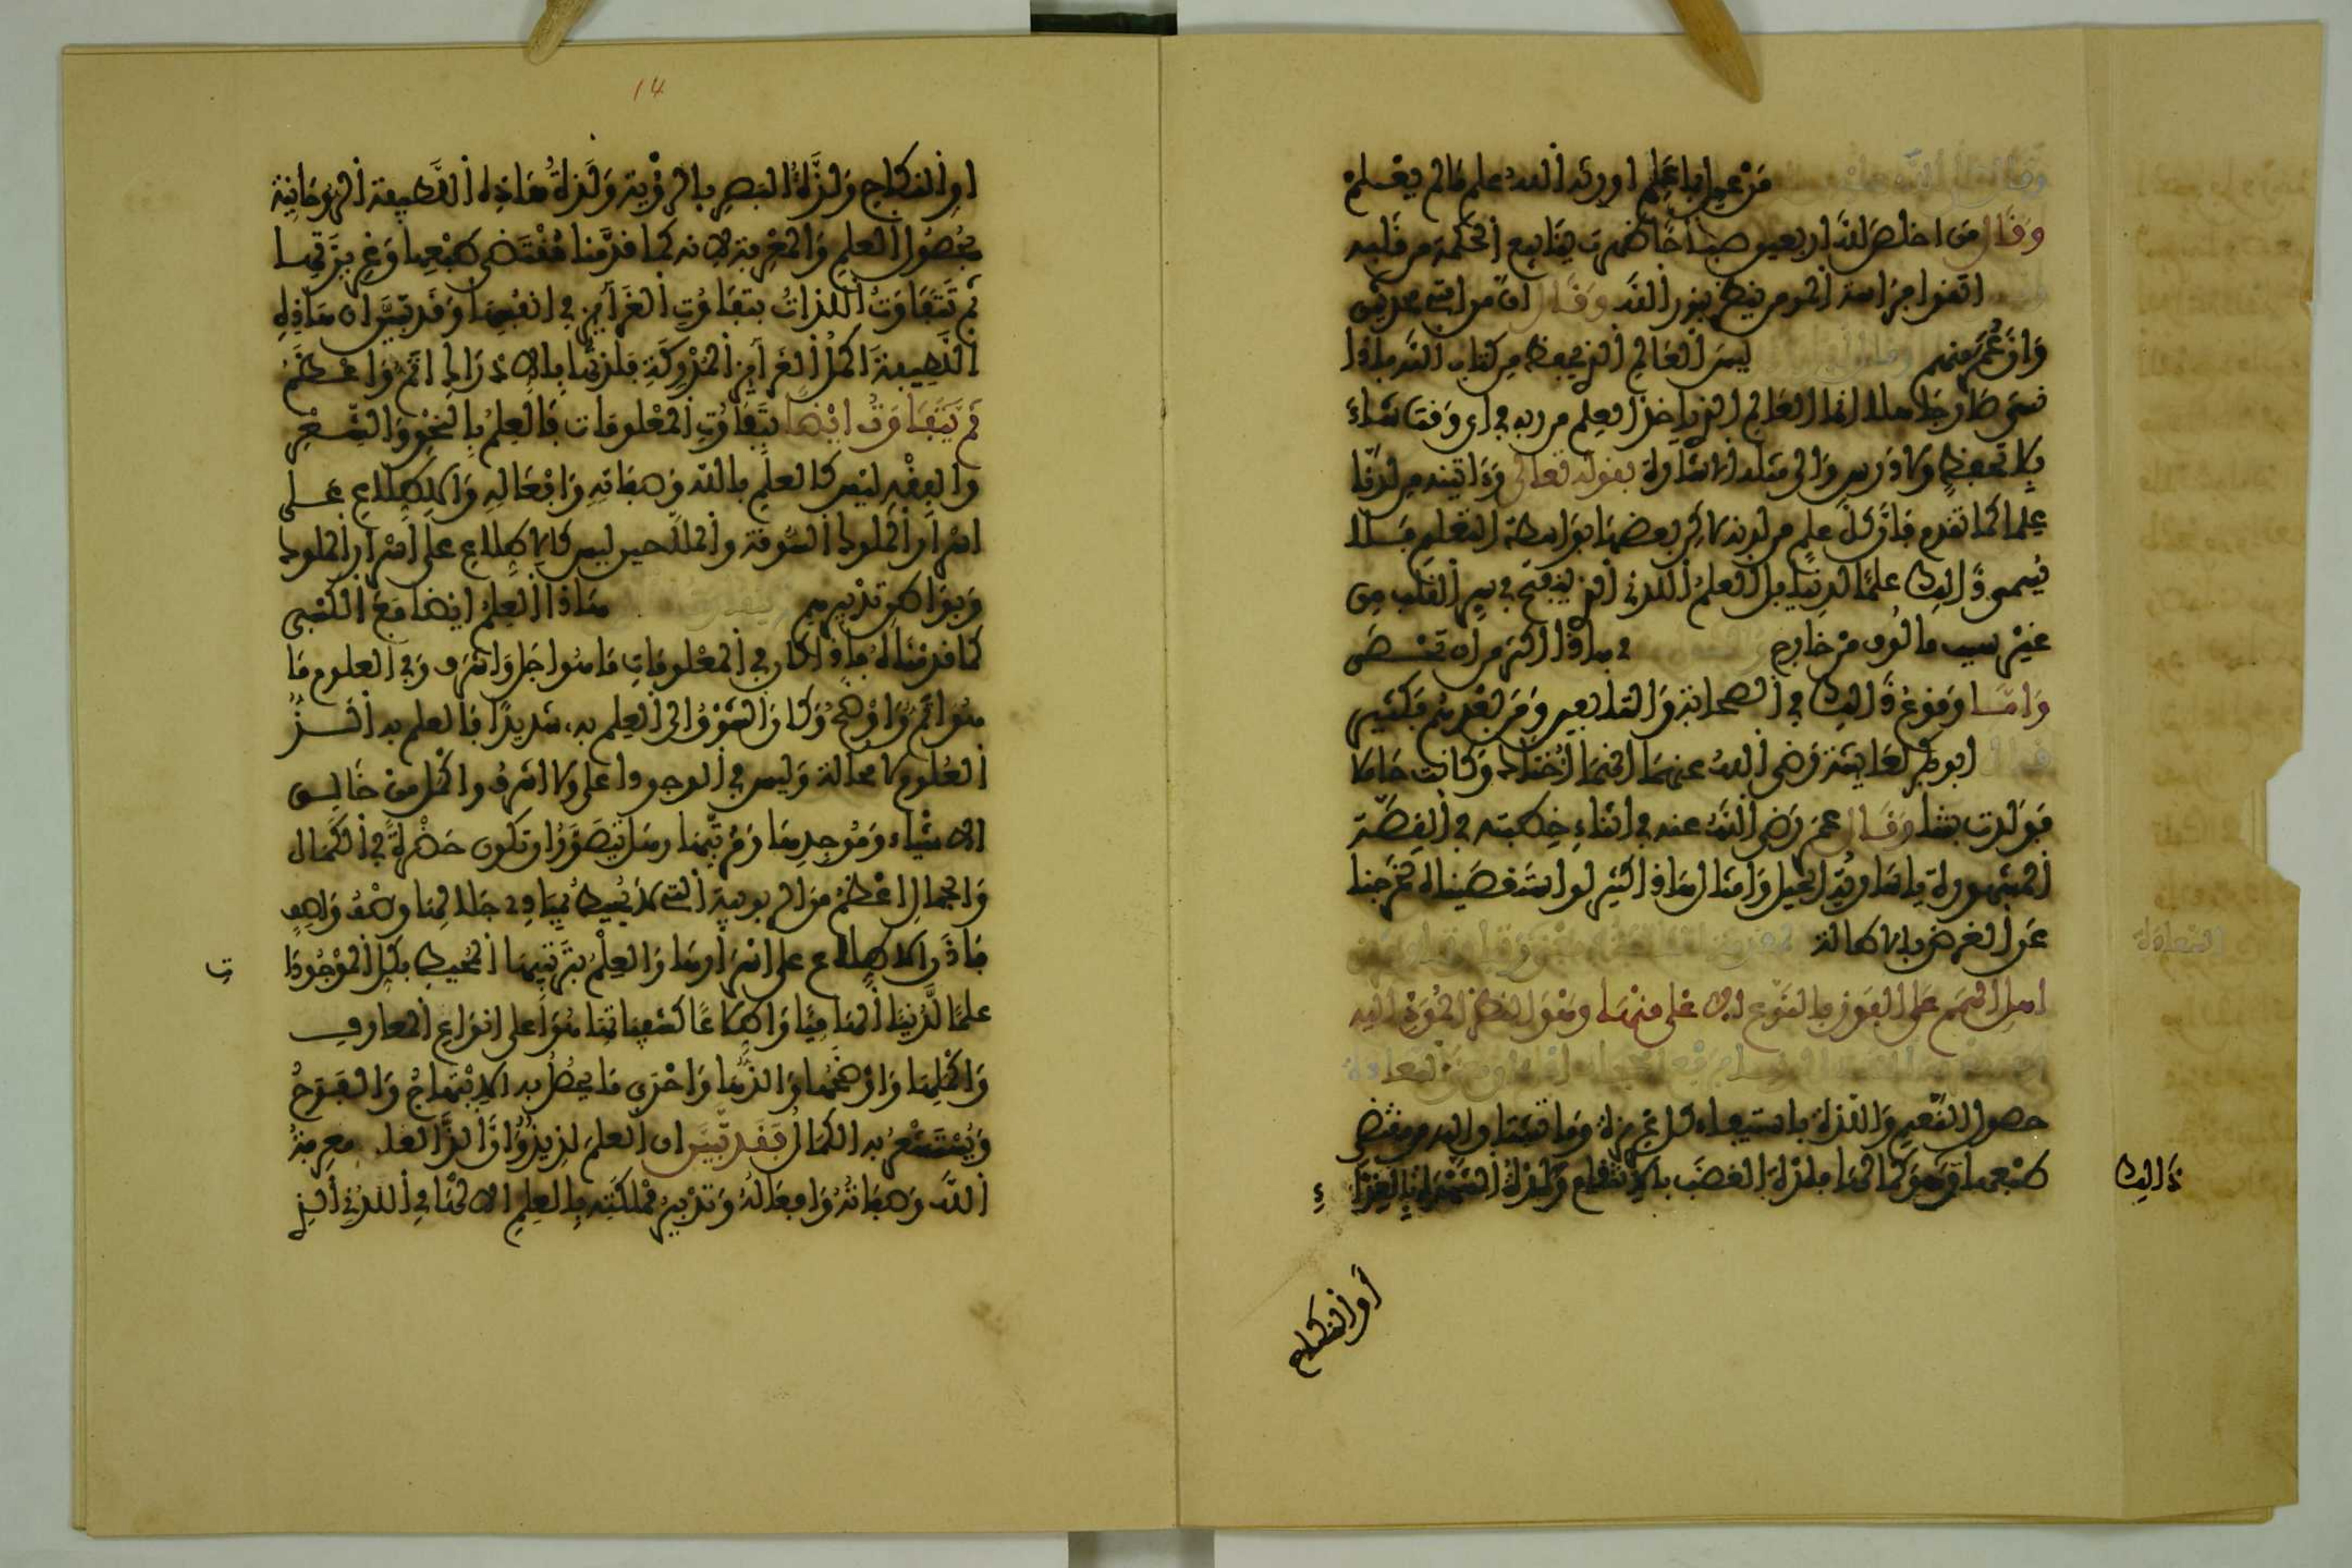 من عمل بما علم اورثه الله علم مالم يعلم
وقال من اخلص لله اربعين صباحا ظهرت ينابيع الحكمة من قلبه
اتقوا فراسة المومن ينظر بنور الله وقال ان من امتى محدثين
وان عمر منهم ليس العالم الذي يحفظ من كتاب الله فاذا
نسى صار جاهلا انما العالم الذي ياخذ العلم من ربه في اي وقت شاء
بلا تحفظ ولا درس والى مثله الاشارة بقوله تعالى وءاتينه من لدنا
علما كما تقدم فان كل علم من لدنه لاكن بعضها بواسطة التعليم فلا
يسمى ذالك علما لدنيا بل العلم اللدني الذي ينفتح في سر القلب من
غير سبب مالوف من خارج وهاذا اكثر من ان تحصى
واما وقوع ذالك في الصحابة والتابعين ومن بعدهم فكثير
قال ابو بكر لعايشة رضى الله عنهما انهما اختاك وكانت حاملا
فولدت بنتا وقال عمر رضى الله عنه في اثناء خطبته في القصة
المشهورة يا سارية الجبل وامثال هاذا كثير لو استقصيناه لخرجنا
عن الغرض بالاطالة
اهل الهمم على الفوز بالنوع الاعلى منها وهو النظر المودي اليه
السعادة
حصول النعيم واللذة باستيفاء كل غريزة وما تشتاق اليه من مقتضى
طبعها وهو كمالها فلذة الغضب بالانتقام ولذة الشهوة بالغذاء
ذالك
او النكاح
14
او النكاح ولذة البصر بالرؤية ولذة هاذه اللطيفة الروحانية
بحصول العلم والمعرفة لانه كما قدمنا مقتضى طبعها وغريزتها
ثم تتفاوت اللذات بتفاوت الغرايز في انفسها وقد تبين ان هاذه
اللطيفة اكمل الغرايز المدركة فلذتها بالادراك اتم واعظم
ثم يتفاوت ايضا بتفاوت المعلومات فالعلم بالنحو والشعر
والفقه ليس كالعلم بالله وصفاته وافعاله والاطلاع على
اسرار الملوك السوقة والفلاحين ليس كالاطلاع على اسرار الملوك
وبواطن تدبيرهم هاذا العلم ايضا مع الكسبى
كما قدمناه فاذا كان في المعلومات ما هو اجل واشرف وفي العلوم ما
هو اتم واوضح وكان الشوق الى العلم به شديدا فالعلم به الذ
العلوم لا محالة وليس في الوجود اعلى ولا اشرف واكمل من خالق
الاشياء وموجدها ومرتبها وهل يتصور ان تكون حضرة في الكمال
والجمال اعظم من الربوبية التي لا يحيط بمبادي جلالها وصف واصف
فاذن الاطلاع على اسرارها والعلم بترتيبها المحيط بكل الموجودا
ت
علما لدنيا الهاميا واطلاعا كشفيا هو اعلى انواع المعارف
واكملها واوضحها والذها واحرى ما يحصل به الابتهاج والفرح
ويستشعر به الكمال فقد تبين ان العلم لذيذ وان الذ العلم معرفة
الله وصفاته وافعاله وتدبير مملكته بالعلم الالهامي اللدني الذي